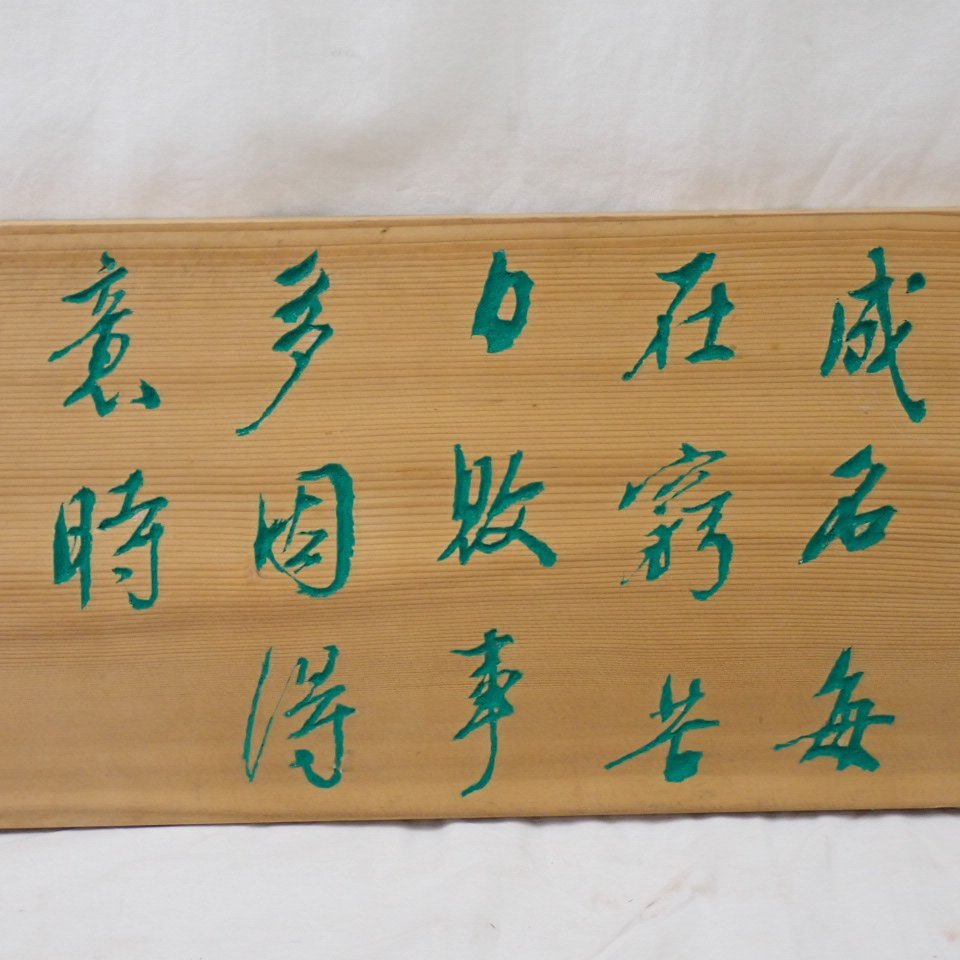 成名每
在窮苦
日敗事
多因得
意時